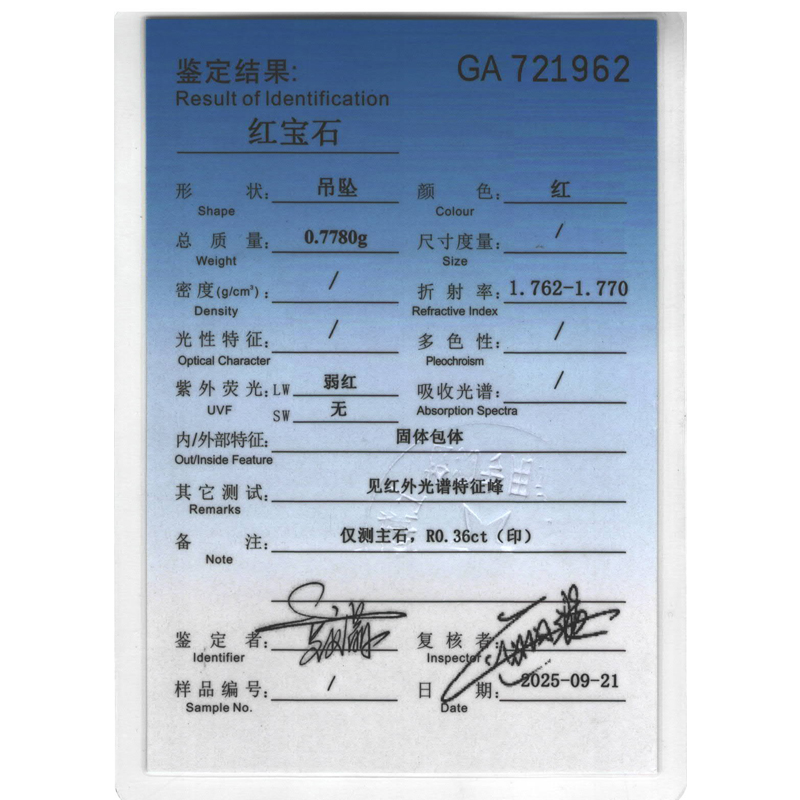 鉴定结果: GA 721962
Result of Identification
红宝石
形 状: 吊坠 颜 色: 红
Shape Colour
总 质 量: 0.7780g 尺寸度量: /
Weight Size
密 度(g/cm³): / 折 射 率: 1.762-1.770
Density Refractive Index
光性特征: / 多 色 性: /
Optical Character Pleochroism
紫外荧光: LW 弱红 吸收光谱: /
UVF SW 无 Absorption Spectra
内/外部特征: 固体包体
Out/Inside Feature
其它测试: 见红外光谱特征峰
Remarks
备 注: 仅测主石, R0.36ct（印）
Note
鉴 定 者: 复 核 者:
Identifier Inspector
样品编号: / 日 期: 2025-09-21
Sample No. Date